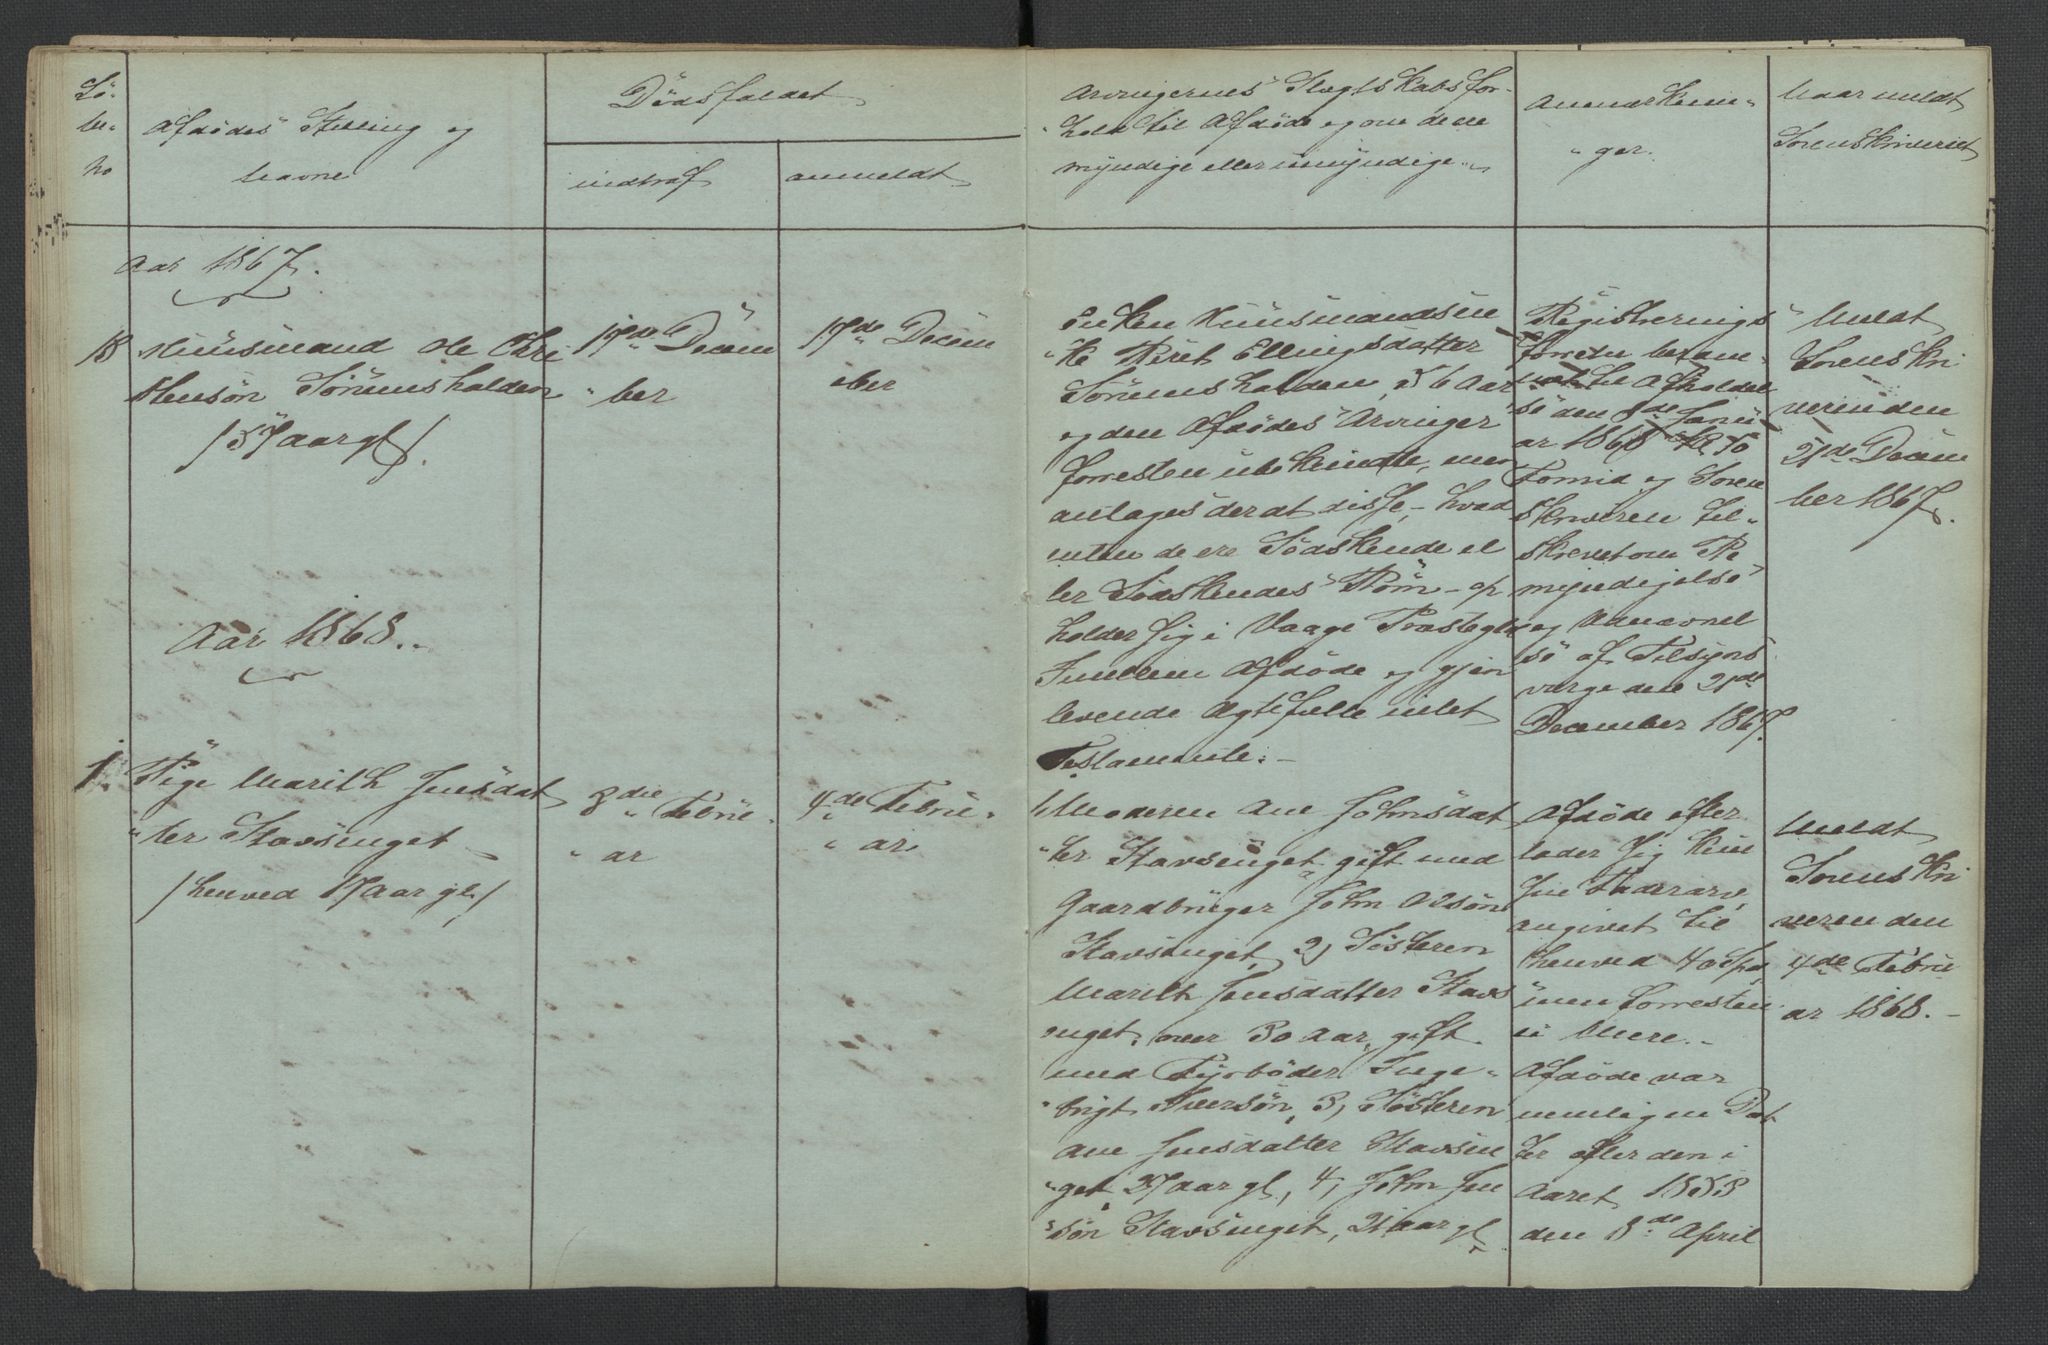 Lø-
be-
No
Afdødes Stilling og
Navne
Dødsfaldet
indtraf
anmeldt
Arvingernes Slægtskabsfor-
hold til Afdøde og om de ere
myndige eller umyndige.
Anmærknin-
ger.
Naar meldt
Sorenskriveriet
Aar 1867.
18 Huusmand Ole Chri
stensøn Sörumshalden
/57 aar gl/.
19de Decem
ber
19de Decem
ber
Enken Huusmandsen-
ke Røret Ellingsdatter
Sörumshalden, 56 Aar
og den Afdødes Arvinger
forresten ubekiendte, men
antages der at disse, hvad
enten de ere Sødskende el
ler Sødskendes Börn - op
holder sig i Vaage Præstegjeld
Imellem Afdøde og gjen
levende Ægtefælle intet
Testamente. -
Registrerings
forretn beram-
met til Afholdel
se den 8de Janu
ar 1868 Kl 10
Formid og Soren
skriveren til-
skrevet om Be
myndigelse
og Udnævnel
se af Tilsyns
værge den 21de
December 1867.
Meldt
Sorenskri
veren den
21de Decem
ber 1867.
Aar 1868.
1. Pige Marith Jensdat
ter Stavsenget
/henved 17 Aar gl/
3die Febru-
ar
4de Febru-
ar
1, Moderen Ane Johnsdat
ter Stavsenget gift med
Gaardbruger John Olsön
Stavsenget, 2, Søsteren
Marith Jensdatter Stavs
enget, over 30 Aar, gift
med Fyrbøder Inge-
brigt Iversön, 3, Søsteren
Ane Jensdatter Stavsen
get 27 aar gl, 4, John Jen
søn Stavsenget, 21 aar gl,
Afdøde efter
lader sig kun
sin Faderarv,
angivet til
henved 40 Spd,
men forresten
ei Mere. -
Afdøde var
nemlig en Dat
ter efter den i
Aaret 1853
den 8de April
Meldt
Sorenskri
veren den
4de Febru
ar 1868. -